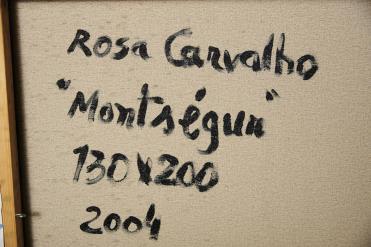 Rosa Carvalho
"Montségur"
130x200
2004